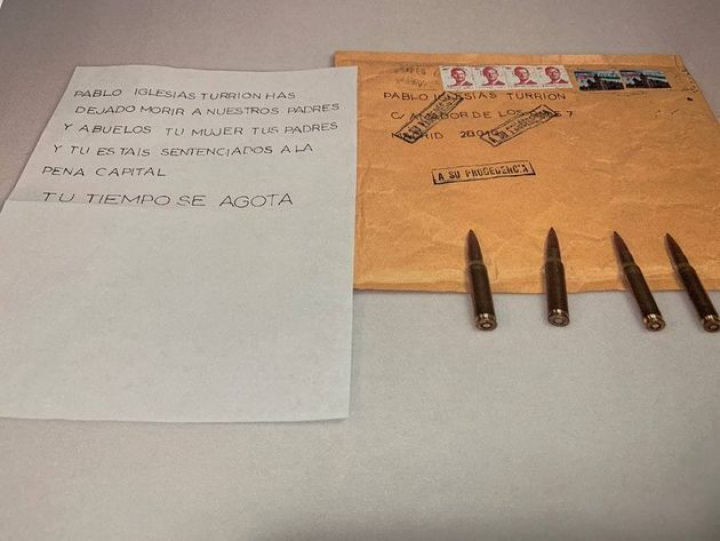 PABLO IGLESIAS TURRION HAS
DEJADO MORIR A NUESTROS PADRES
Y ABUELOS TU MUJER TUS PADRES
Y TU ESTAIS SENTENCIADOS A LA
PENA CAPITAL
TU TIEMPO SE AGOTA
PABLO IGLESIAS TURRION
C/ DE LOS 7
A SU PRUDEDENCIA